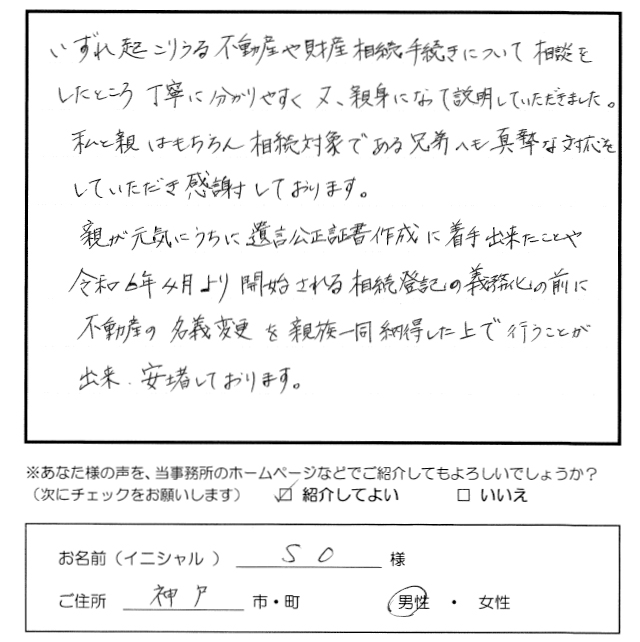 いずれ起こりうる不動産や財産相続手続きについて相談を
したところ丁寧に分かりやすく又、親身になって説明していただきました。
私と親はもちろん相続対象である兄弟へも真摯な対応を
していただき感謝しております。
親が元気にうちに遺言公正証書作成に着手出来たことや
令和6年4月より開始される相続登記の義務化の前に
不動産の名義変更を親族一同納得した上で行うことが
出来、安堵しております。
※あなた様の声を、当事務所のホームページなどでご紹介してもよろしいでしょうか?
(次にチェックをお願いします) ☑ 紹介してよい □ いいえ
お名前(イニシャル) S O 様
ご住所 神戸 市・町 男性 ・ 女性